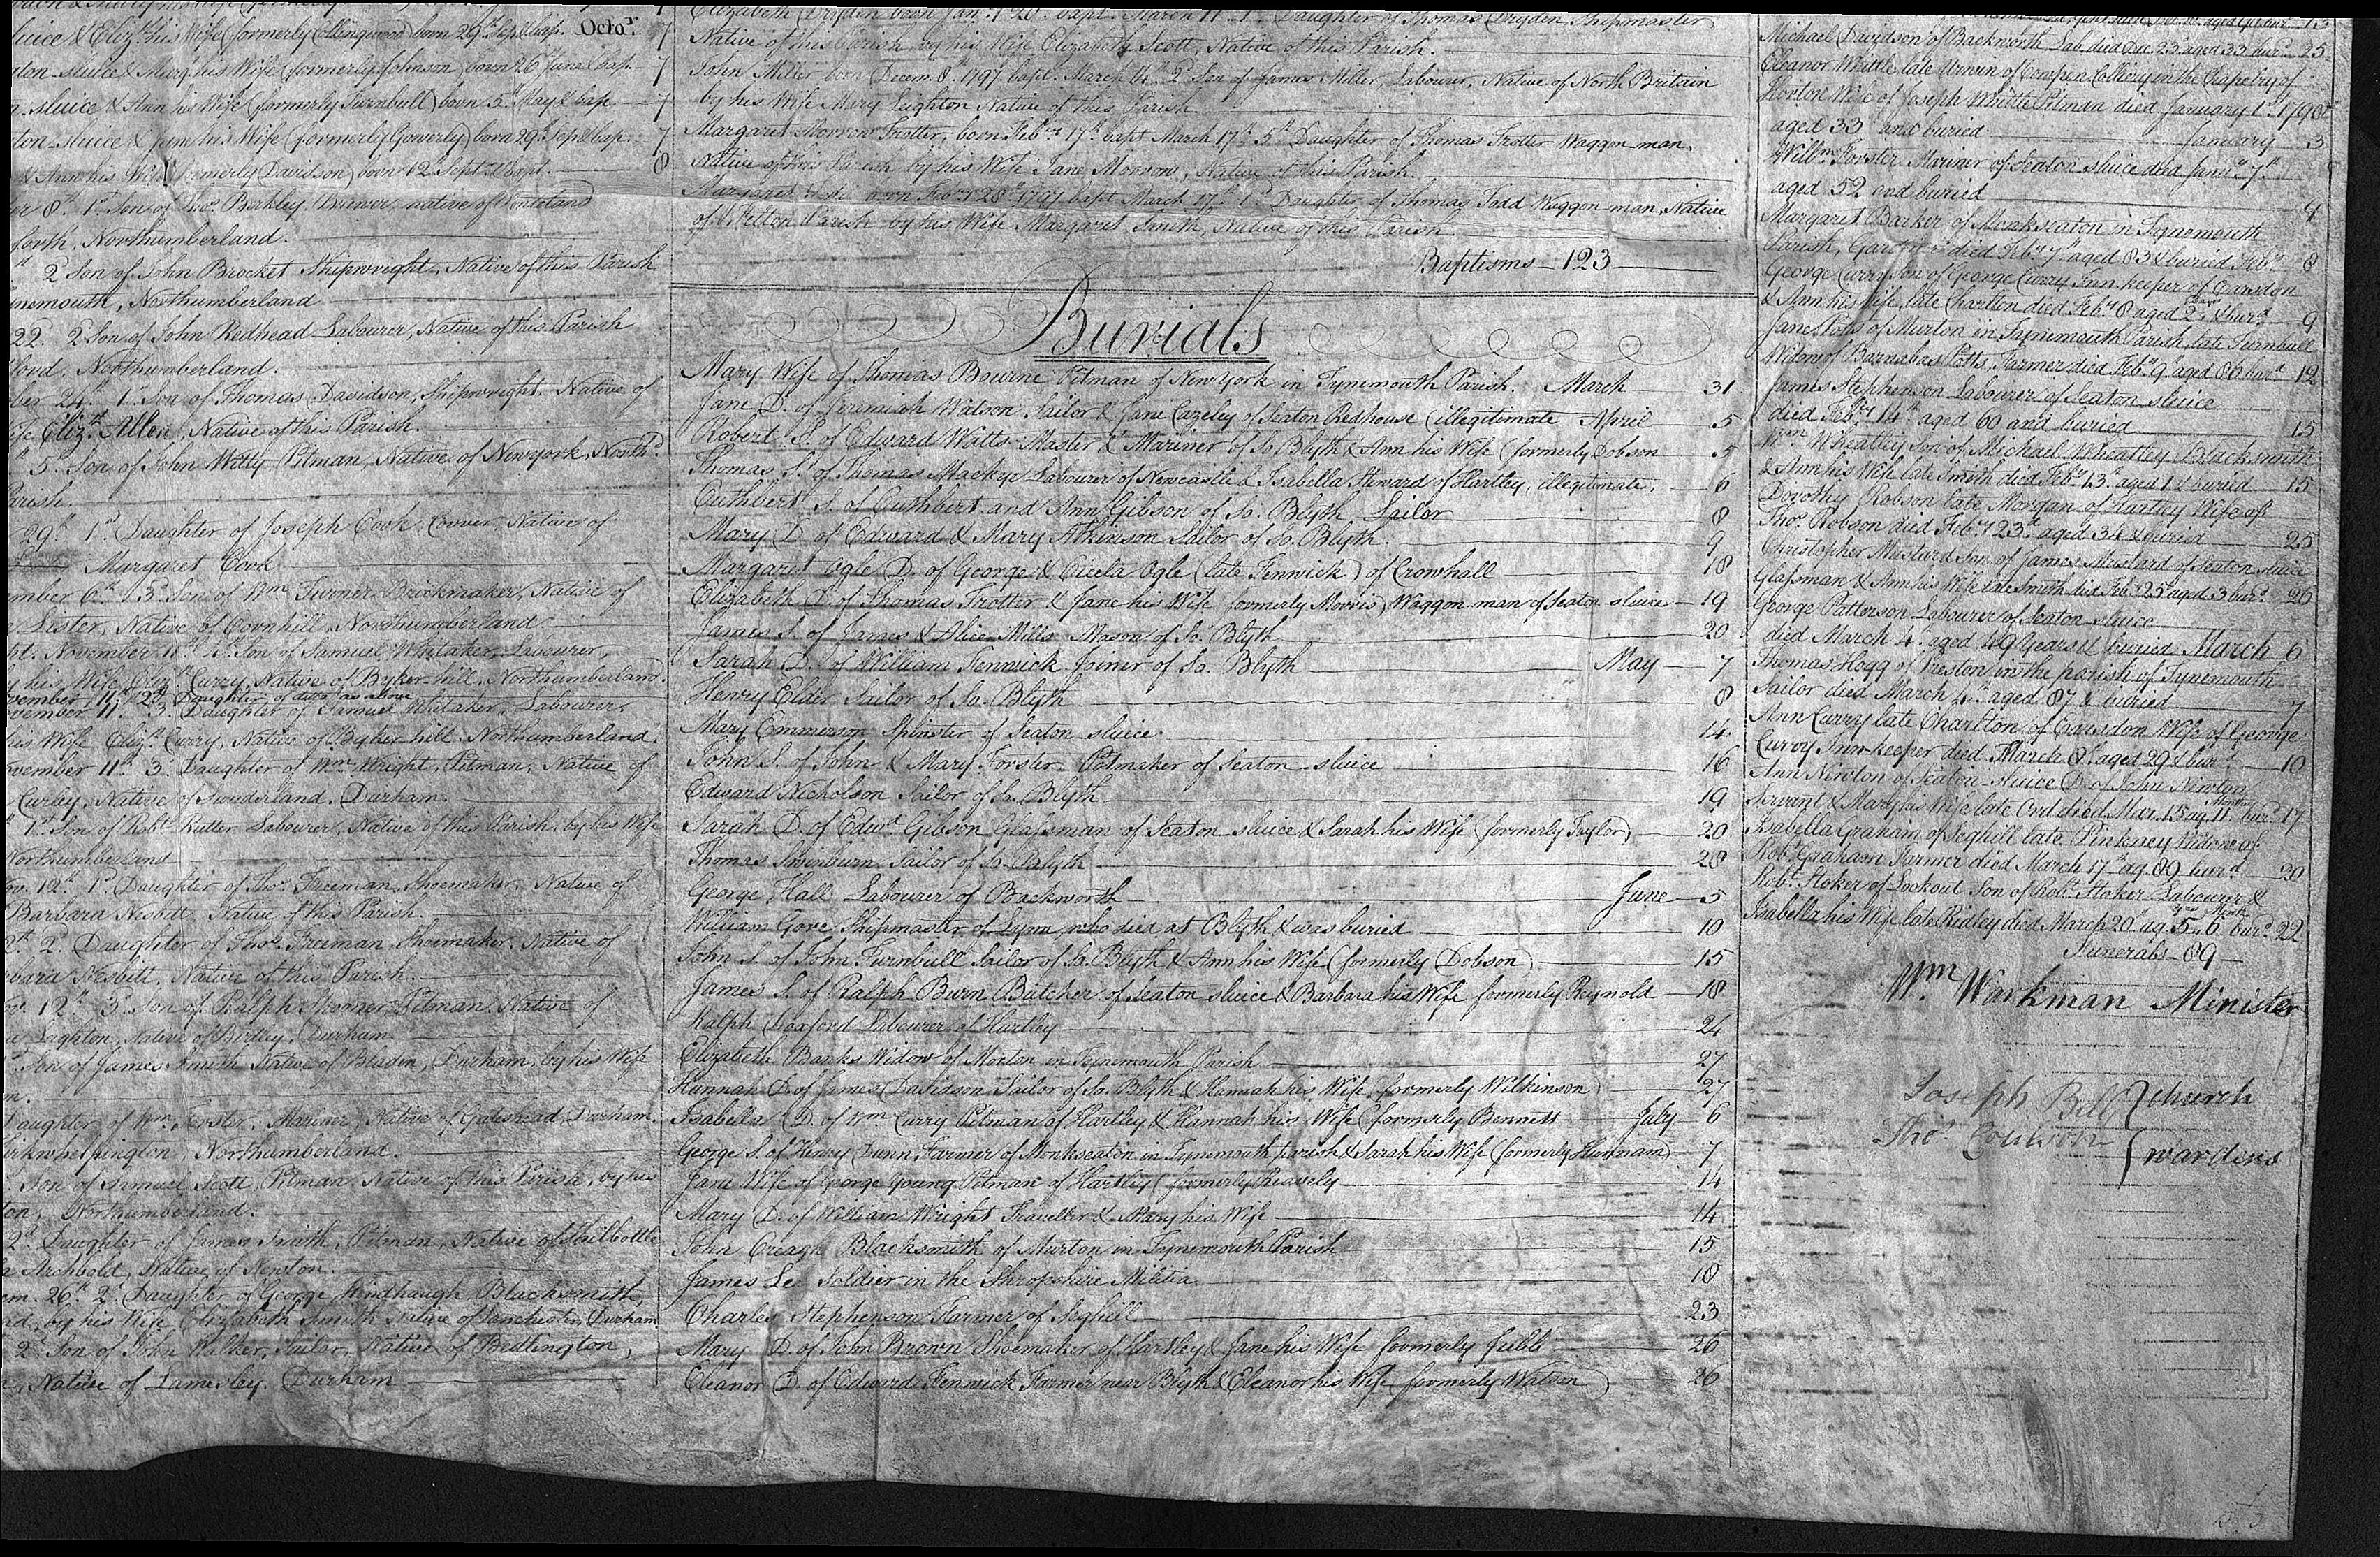 Sluice & Eliz. his Wife (formerly Collingwood) born 29th Sep. & bap. Octo.r 7
ton-sluice & Marg. his Wife (formerly Johnson) born 26 June & bap. 7
sluice & Ann his Wife (formerly Turnbull) born 5th May & bap. 7
ton-sluice & Jane his Wife (formerly Gowerly) born 29th Sep & bap. 7
& Ann his Wife (formerly Davidson) born 12th Sept. & bapt. 8
er 8th 1st Son of Thos. Berkley Brewer native of Ponteland
forth, Northumberland.
2d Son of John Brocket Shipwright, Native of this Parish
nemouth, Northumberland
22. 2 Son of John Redhead Labourer, Native of this Parish
ford, Northumberland.
ber 24th 1st Son of Thomas Davidson, Shipwright, Native of
ife Elizth Allen, Native of this Parish.
5th Son of John Witty Pitman, Native of Newyork, North.d
arish
29th 1st Daughter of Joseph Cook, Native of
Margaret Cook
mber 6th 3d Son of Wm Turner Brickmaker, Native of
Lister, Native of Cornhill, Northumberland
pt. November 11th 1st Son of Samuel Whitaker, Labourer,
y his Wife Elizth Curry, Native of Byker-hill, Northumberland.
vember 11th 2d Daughter of ditto as above
vember 11th 3d Daughter of Samuel Whitaker, Labourer,
his Wife Elizth Curry, Native of Byker hill, Northumberland.
vember 11th 3d Daughter of Wm Wright, Pitman, Native of
Curley, Native of Sunderland. Durham.
1st Son of Robt Rutter Labourer, Native of this Parish, by his Wife
Northumberland
ov. 12th 1st Daughter of Thos. Freeman, Shoemaker, Native of
Barbara Nesbitt, Native of this Parish.
2th 2d Daughter of Thos. Freeman, Shoemaker, Native of
bara Nesbitt, Native of this Parish.
ov. 12th 3d Son of Ralph Spooner Pitman, Native of
a Leighton, Native of Birtley, Durham
Son of James Smith Native of Bladon, Durham, by his Wife
m.
Daughter of Wm. Forster, Mariner, Native of Gateshead, Durham.
irkwhelpington, Northumberland.
Son of Samuel Scott, Pitman, Native of this Parish, by his
ton, Northumberland.
2d Daughter of James Smith, Pitman, Native of Shilbottle
a Archbold, Native of Newton.
em. 26th 2d Daughter of George Hindhaugh Blacksmith,
nd, by his Wife Elizabeth Smith Native of Lanchester, Durham
2d Son of John Walker, Sailor, Native of Bedlington,
, Native of Lamesley. Durham
Elizabeth Dryden born Jan. 20 bapt. March 11 1st Daughter of Thomas Dryden, Shipmaster
Native of this Parish, by his Wife Elizabeth Scott, Native of this Parish.
John Miller born Decem. 8th 1797 bapt. March 14th 2d Son of James Miller, Labourer, Native of North Britain
by his Wife Mary Leighton Native of this Parish
Margaret Morrow Trotter, born Feb. 17th bapt March 17th 5th Daughter of Thomas Trotter Waggon man,
Native of this Parish by his Wife Jane Morrow, Native of this Parish.
Margaret Todd born Feb. 28th 1797 bapt March 17th 1st Daughter of Thomas Todd Waggon man, Native
of Parish by his Wife Margaret Smith, Native of this Parish
Baptisms 123
Burials
Mary Wife of Thomas Bourne Pitman of New York in Tynemouth Parish. March 31
Jane D. of Jeremiah Watson Sailor & Jane Cazeley of Seaton Redhouse (illegitimate April 5
Robert S. of Edward Watts Master & Mariner of So. Blyth & Ann his Wife (formerly Dobson 5
Thomas S. of Thomas Mackye Labourer of Newcastle & Isabella Steward of Hartley, illegitimate. 6
Cuthbert S. of Cuthbert and Ann Gibson of So. Blyth Sailor 8
Mary D. of Edward & Mary Atkinson Sailor of So. Blyth. 9
Margaret Ogle D. of George & Cicela Ogle (late Fenwick) of Crowhall 18
Elizabeth D. of Thomas Trotter & Jane his Wife formerly Morris) Waggon-man of Seaton sluice 19
James S. of James & Alice Mills Mason of So. Blyth 20
Sarah D. of William Fenwick Joiner of So. Blyth May 7
Henry Elder Sailor of So. Blyth 8
Mary Emmerson Spinster of Seaton sluice 14
John S. of John & Mary Forster Potmaker of Seaton sluice 16
Edward Nicholson Sailor of So. Blyth 19
Sarah D. of Edwd Gibson Glassman of Seaton sluice & Sarah his Wife (formerly Taylor) 20
Thomas Swinburn Sailor of So. Blyth 28
George Hall Labourer of Backworth June 5
William Gove Shipmaster of Lyme who died at Blyth & was buried 10
John S. of John Turnbull Sailor of So. Blyth & Ann his Wife (formerly Dobson) 15
James S. of Ralph Burn Butcher of Seaton sluice & Barbara his Wife formerly Reynold 18
Ralph Coxford Labourer of Hartley 24
Elizabeth Banks Widow of Morton in Tynemouth Parish 27
Hannah D. of James Davidson Sailor of So. Blyth & Hannah his Wife formerly Wilkinson) 27
Isabella D. of Wm Curry Pitman of Hartley & Hannah his Wife (formerly Bennett July 6
George S. of Henry Dunn Farmer of Monkseaton in Tynemouth parish & Sarah his Wife (formerly Hannam) 7
Jane Wife of George Young Pitman of Hartley (formerly Reavely 14
Mary D. of William Wright Traveller & Mary his Wife 14
John Creagh Blacksmith of Murton in Tynemouth Parish 15
James Lee Soldier in the Shropshire Militia 18
Charles Stephenson Farmer of Seghill 23
Mary D. of John Brown Shoemaker of Hartley & Jane his Wife formerly Jubb 26
Eleanor D. of Edward Fenwick Farmer near Blyth & Eleanor his Wife formerly Watson) 26
Michael Davidson of Backworth Lab. died Dec. 23 aged 33 bur.d 25
Eleanor Whittle late Urwin of Cowpen Colliery in the Chapelry of
Horton Wife of Joseph Whittle Pitman died January 1st 1798
aged 33 and buried January 3
Willm Forster Mariner of Seaton sluice died Jan. 7th
aged 52 and buried 9
Margaret Barker of Monkseaton in Tynemouth
Parish, died Feb. 7th aged 83 & buried Feb. 8
George Curry Son of George Curry Inn-keeper of Earsdon
& Ann his Wife, late Charlton died Feb. 8 aged 2 days & bur.d 9
Jane Potts of Murton in Tynemouth Parish, late Turnbull
Widow of Barnabas Potts, Farmer died Feb. 9th aged 86 bur.d 12
James Stephenson Labourer of Seaton sluice
died Feb. 14th aged 60 and buried 15
Wm Wheatley Son of Michael Wheatley Blacksmith
& Ann his Wife late Smith died Feb. 13th aged 1 & buried 15
Dorothy Robson late Morgan of Hartley Wife of
Thos. Robson died Feb. 23d aged 34 & buried 25
Christopher Mustard Son of James Mustard of Seaton sluice
Glassman & Ann his Wife late Smith died Feb. 25th aged 3 bur.d 26
George Patterson Labourer of Seaton sluice
died March 4th aged 49 Years & buried March 6
Thomas Hogg of Preston in the parish of Tynemouth
Sailor died March 4th aged 87 & buried 7
Ann Curry late Charlton of Earsdon Wife of George
Curry Inn-keeper died March 8th aged 29 & bur.d 10
Ann Newton of Seaton-sluice D. of John Newton
Servant & Mary his Wife late Ord died Mar. 15 ag. 11 Months bur.d 17
Isabella Graham of Seghill late Pinkney Widow of
Robt Graham Farmer died March 17th ag. 89 bur.d 20
Robt Stoker of Lookout Son of Robt Stoker Labourer &
Isabella his Wife late Ridley died March 20th ag. 5 yrs 6 Months bur.d 22
Funerals 89
Wm Workman Minister
Joseph Bell } church
Thos Coulson } wardens